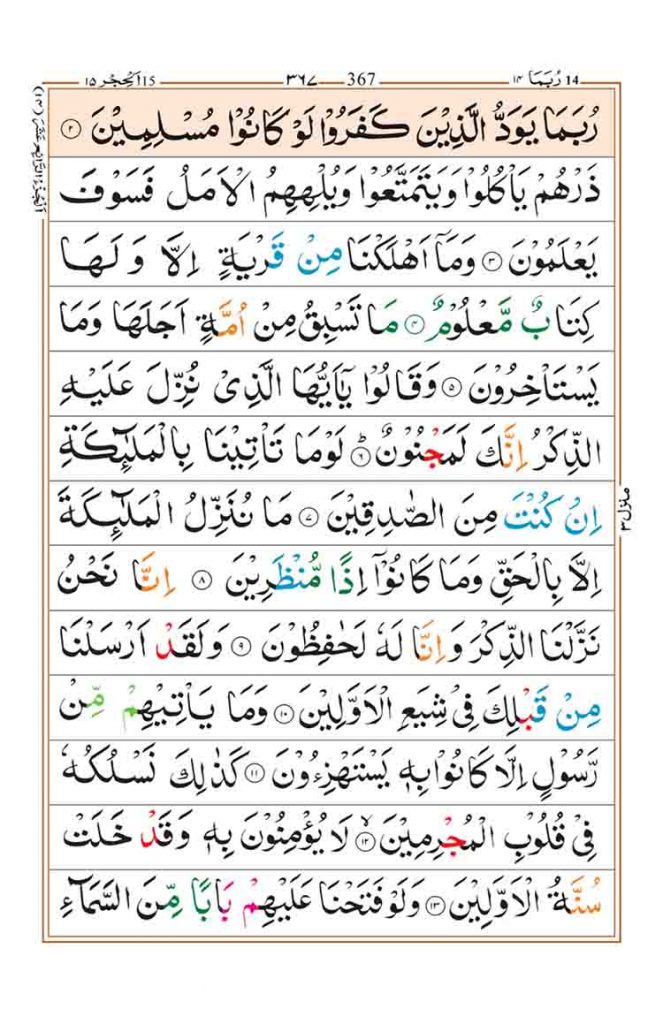 ١٥ اَلْحِجْر 15 ٣٦٧ 367 ١٤ رُبَمَا 14
رُبَمَا يَوَدُّ الَّذِيْنَ كَفَرُوْا لَوْ كَانُوْا مُسْلِمِيْنَ ﴿۲﴾
ذَرْهُمْ يَاْكُلُوْا وَيَتَمَتَّعُوْا وَيُلْهِهِمُ الْاَمَلُ فَسَوْفَ
يَعْلَمُوْنَ ﴿۳﴾ وَمَاۤ اَهْلَكْنَا مِنْ قَرْيَةٍ اِلَّا وَلَهَا
كِتَابٌ مَّعْلُوْمٌ ﴿۴﴾ مَا تَسْبِقُ مِنْ اُمَّةٍ اَجَلَهَا وَمَا
يَسْتَاْخِرُوْنَ ﴿۵﴾ وَقَالُوْا يٰۤاَيُّهَا الَّذِيْ نُزِّلَ عَلَيْهِ
الذِّكْرُ اِنَّكَ لَمَجْنُوْنٌ ؕ﴿۶﴾ لَوْمَا تَاْتِيْنَا بِالْمَلٰٓئِكَةِ
اِنْ كُنْتَ مِنَ الصّٰدِقِيْنَ ﴿۷﴾ مَا نُنَزِّلُ الْمَلٰٓئِكَةَ
اِلَّا بِالْحَقِّ وَمَا كَانُوْۤا اِذًا مُّنْظَرِيْنَ ﴿۸﴾ اِنَّا نَحْنُ
نَزَّلْنَا الذِّكْرَ وَاِنَّا لَهٗ لَحٰفِظُوْنَ ﴿۹﴾ وَلَقَدْ اَرْسَلْنَا
مِنْ قَبْلِكَ فِيْ شِيَعِ الْاَوَّلِيْنَ ﴿۱۰﴾ وَمَا يَاْتِيْهِمْ مِّنْ
رَّسُوْلٍ اِلَّا كَانُوْا بِهٖ يَسْتَهْزِءُوْنَ ﴿۱۱﴾ كَذٰلِكَ نَسْلُكُهٗ
فِيْ قُلُوْبِ الْمُجْرِمِيْنَ ۙ﴿۱۲﴾ لَا يُؤْمِنُوْنَ بِهٖ وَقَدْ خَلَتْ
سُنَّةُ الْاَوَّلِيْنَ ﴿۱۳﴾ وَلَوْ فَتَحْنَا عَلَيْهِمْ بَابًا مِّنَ السَّمَآءِ
اَلْجُزْءُ الرَّابِعُ عَشَرَ (١٤)
منزل ٣